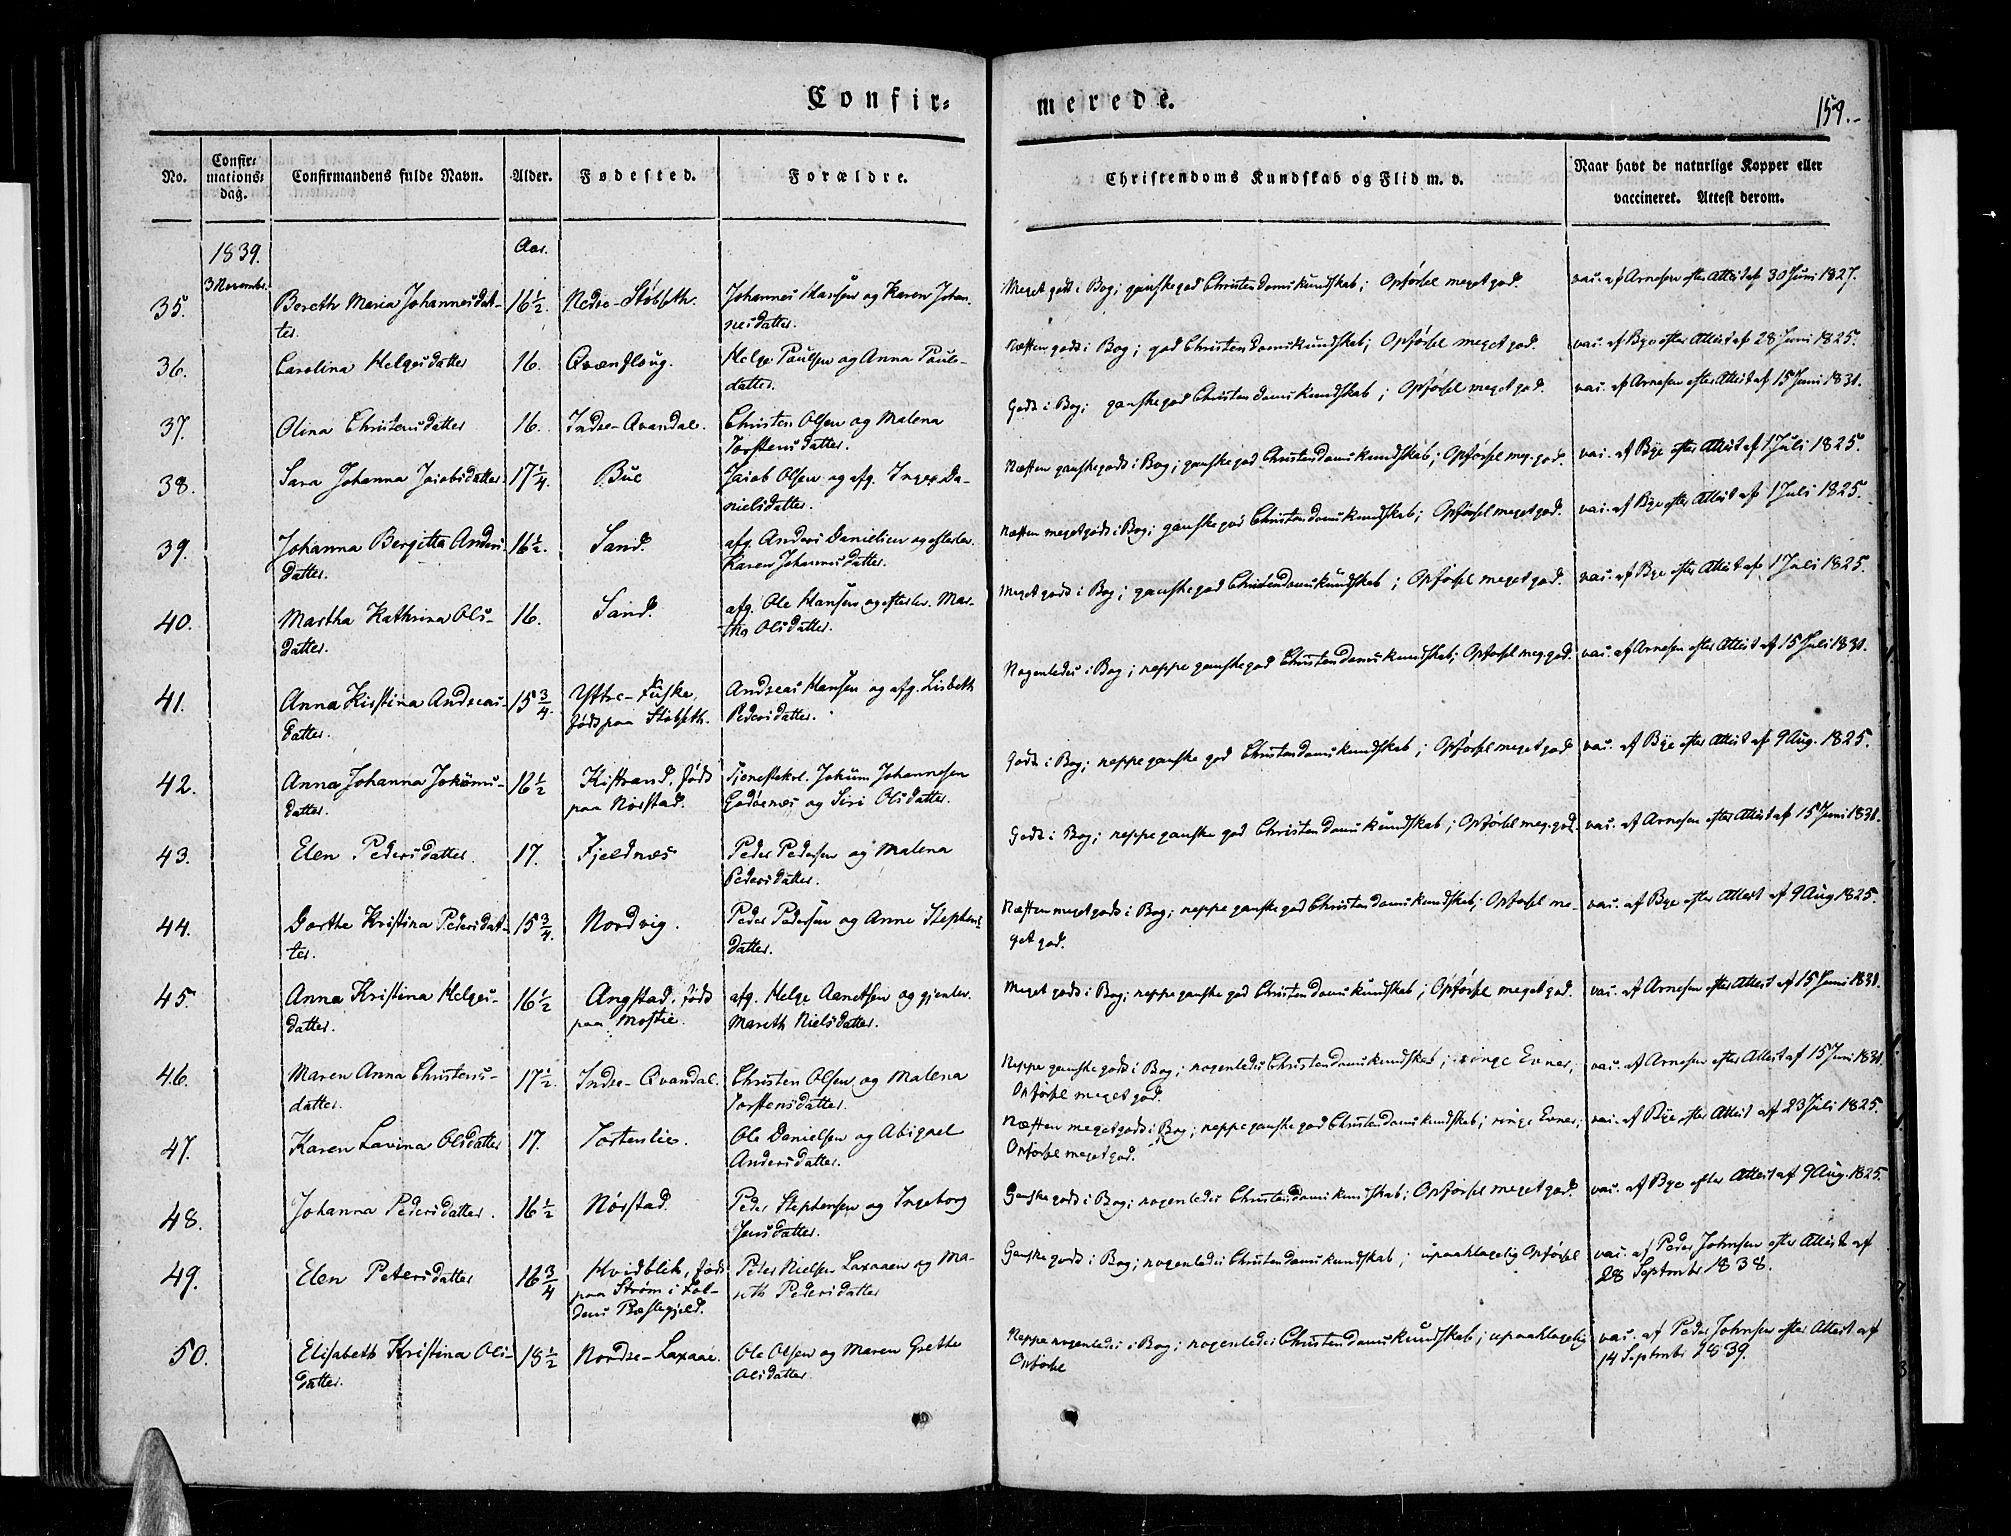 Confir-
merede.
159.
No.
Confir-
mations-
dag.
Confirmandens fulde Navn.
Alder.
Fødested.
Forældre.
Christendoms Kundskab og Flid m. v.
Naar havt de naturlige Kopper eller
vaccineret. Attest derom.
1839.
Aar.
3 Novembr.
35.
Bereth Maria Johannesdat-
ter.
16 1/2.
Nedre-Støbseth.
Johannes Hansen og Karen Johan-
nesdatter.
Meget godt i Bog; ganske god Christendomskundskab; Opførsel meget god.
vac. af Arnesen efter Attest af 30 Juni 1827.
36.
Carolina Helgesdatter
16.
Qvænfloug.
Helge Paulsen og Anna Pauls-
datter.
Næsten godt i Bog; god Christendomskundskab; Opførsel meget god.
vac. af Bye efter Attest af 28 Juni 1825.
37.
Olina Christensdatter
16.
Indre-Qvandal.
Christen Olsen og Malena
Torstensdatter.
Godt i Bog; ganske god Christendomskundskab; Opførsel meget god.
vac. af Arnesen efter Attest af 15 Juni 1831.
38.
Sara Johanna Jacobsdatter
17 1/4.
Bue
Jacob Olsen og afg. Inger Da-
nielsdatter.
Næsten ganske godt i Bog; ganske god Christendomskundskab; Opførsel meg. god.
vac. af Bye efter Attest af 1 Juli 1825.
39.
Johanna Bergitta Anders-
datter.
16 1/2.
Sand.
afg. Anders Danielsen og efterlev.
Karen Johannesdatter.
Næsten meget godt i Bog; ganske god Christendomskundskab; Opførsel meget god.
vac. af Bye efter Attest af 1 Juli 1825.
40.
Martha Kathrina Ols-
datter.
16.
Sand.
afg. Ole Hansen og efterlev. Mar-
tha Olsdatter.
Meget godt i Bog; ganske god Christendomskundskab; Opførsel meget god.
vac. af Bye efter Attest af 1 Juli 1825.
41.
Anna Kirstina Andreas-
datter.
15 3/4.
Yttre-Fuske,
født paa Støbseth.
Andreas Hansen og afg. Lisbeth
Pedersdatter.
Nogenledes i Bog; neppe ganske god Christendomskundskab; Opførsel meg. god.
vac. af Arnesen efter Attest af 15 Juli 1831.
42.
Anna Johanna Jokums-
datter.
16 1/2
Kistrand, født
paa Nørstad.
Tjenestekrl. Jokum Johannesen
Godønes og Siri Olsdatter.
Godt i Bog; neppe ganske god Christendomskundskab; Opførsel meget god
vac. af Bye efter Attest af 9 Aug. 1825.
43.
Elen Pedersdatter.
17.
Fjeldnæs
Peder Pedersen og Malena
Pedersdatter.
Godt i Bog; neppe ganske god Christendomskundskab; Opførsel meg. god.
vac. af Arnesen efter Attest af 15 Juni 1831.
44.
Dorthe Kristina Pedersdat-
ter.
15 3/4.
Nordvig.
Peder Pedersen og Anne Stephens-
datter.
Næsten meget godt i Bog; neppe ganske god Christendomskundskab; Opførsel me-
get god.
vac. af Bye efter Attest af 9 Aug 1825.
45
Anna Kristina Helges-
datter.
16 1/2
Angstad, født
paa Mostie.
afg. Helge Aanetsen og gjenlev.
Mareth Nielsdatter.
Meget godt i Bog; neppe ganske god Christendomskundskab; Opførsel meget god.
vac. af Arnesen efter Attest af 15 Juni 1831.
46.
Maren Anna Christens-
datter.
17 1/2.
Indre-Qvandal.
Christen Olsen og Malena
Torstensdatter.
Neppe ganske godt i Bog; nogenledes Christendomskundskab; ringe Evner;
Opførsel meget god.
vac. af Arnesen efter Attest af 15 Juni 1831.
47.
Karen Lavina Olsdatter
17.
Tortenlie.
Ole Danielsen og Abigael
Andersdatter.
Næsten meget godt i Bog; neppe ganske god Christendomskundskab; ringe Evner;
Opførsel meget god.
vac. af Bye efter Attest af 23 Juli 1825.
48.
Johanna Pedersdatter.
16 1/2
Nørstad.
Peder Stephensen og Ingeborg
Jensdatter.
Ganske godt i Bog; nogenledes Christendomskundskab; Opførsel meget god.
vac. af Bye efter Attest af 9 Aug. 1825.
49.
Elen Petersdatter
16 3/4
Hvidblik, født
paa Strøm i Fol-
dens Præstegjeld.
Peter Nielsen Laxaaen og Ma-
reth Pedersdatter
Ganske godt i Bog; nogenledes Christendomskundskab; upaaklagelig Opførsel
vac. af Peder Johnsen efter Attest af
28 Septmbr 1838.
50.
Elisabeth Kristina Ols-
datter.
18 1/2
Nordre-Laxaae.
Ole Olsen og Maren Grethe
Olsdatter.
Neppe nogenledes i Bog; nogenledes Christendomskundskab; upaaklagelig
Opførsel
vac. af Peder Johnsen efter Attest af
14 Septmbr 1839.